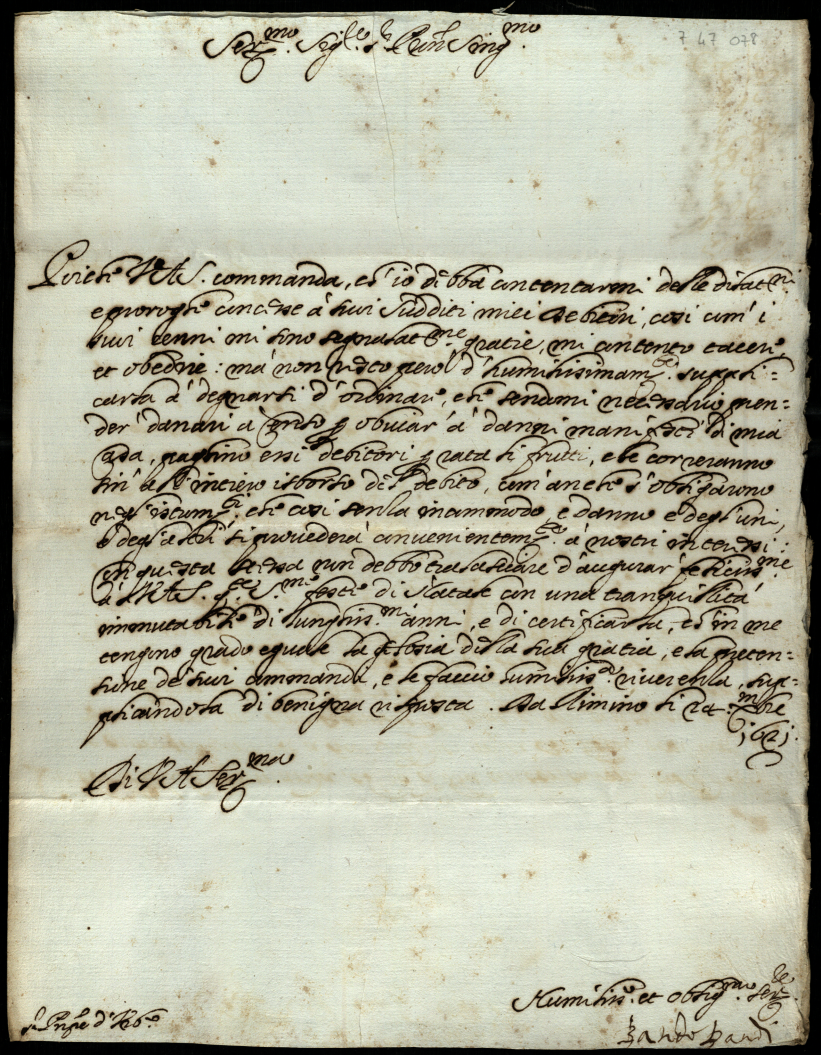 Ser.mo Sig.re Sig.r P.ron Sing.mo
7 47 078
Poiche V.A.S. commanda, ch'io debba contentarmi delle dilat.ni
e proroghe concesse à suoi sudditi miei debitori, così com'i
suoi cenni mi sono segnalat.me gratie, mi contento tacere,
et obedire: mà non resto però d'humilissimam.te suppli=
carla à degnarsi d'ordinare, che sendomi necessario pren=
der danari à censo p obviar à danni manifesti di mia
casa, paghino essi debitori p rata li frutti, che correranno
sin' all'intiero isborso del debito, com'anche s'obligarono
negl'istrum.ti, che così senza incommodo, e danno e degl'uni,
e degl'altri si provederà convenientem.te à nostri interessi:
in questa stessa non debbo tralasciare d'augurar feliciss.me
à V.A.S. q.te S.me feste di Natale con una tranquillità
immutabile di lunghiss.mi anni, e di certificarla, ch'in me
tengono grado eguale la gloria della sua gratia, e la preten=
sione de suoi commandi, e le faccio humiliss.a riverenza, sup=
plicandola di benigna risposta. Da Rimino li 24 Xbre
1621.
Di V.A. Ser.ma
Humiliss. et oblig.mo ser.re
Bando Bandi
S.r Pnpe d'Urb.o